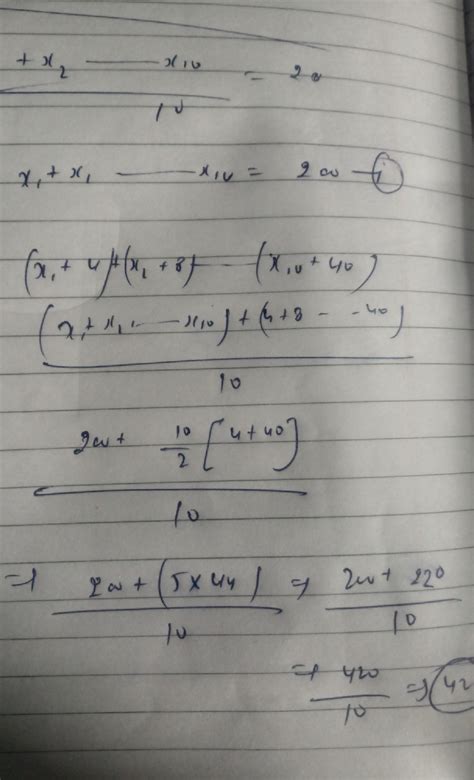 + x₂ —— x₁₀ / 10 = 20
x₁ + x₁ —— x₁₀ = 200 — (i)
(x₁ + 4) + (x₂ + 8) - - - (x₁₀ + 40)
(x₁ + x₂ - - - x₁₀) + (4 + 8 - - - 40) / 10
200 + 10/2 [4 + 40] / 10
⇒ 200 + (5 × 44) / 10 ⇒ 200 + 220 / 10
⇒ 420 / 10 ⇒ 42